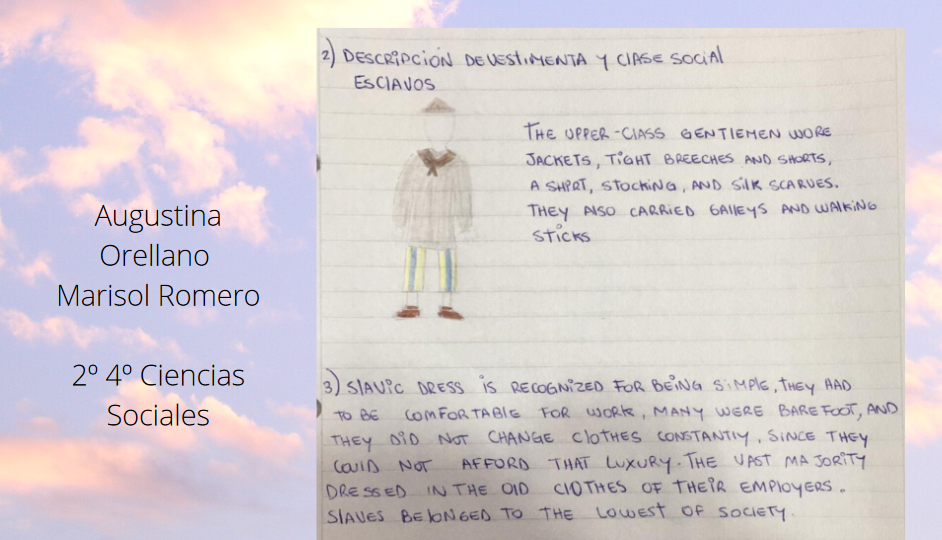 Augustina
Orellano
Marisol Romero
2º 4º Ciencias
Sociales
2) DESCRIPCIÓN DE VESTIMENTA Y CLASE SOCIAL
ESCLAVOS
THE UPPER-CLASS GENTLEMEN WORE
JACKETS, TIGHT BREECHES AND SHORTS,
A SHIRT, STOCKING, AND SILK SCARVES.
THEY ALSO CARRIED GALLEYS AND WALKING
STICKS
3) SLAVIC DRESS IS RECOGNIZED FOR BEING SIMPLE, THEY HAD
TO BE COMFORTABLE FOR WORK, MANY WERE BAREFOOT, AND
THEY DID NOT CHANGE CLOTHES CONSTANTLY, SINCE THEY
COULD NOT AFFORD THAT LUXURY. THE VAST MAJORITY
DRESSED IN THE OLD CLOTHES OF THEIR EMPLOYERS.
SLAVES BELONGED TO THE LOWEST OF SOCIETY.